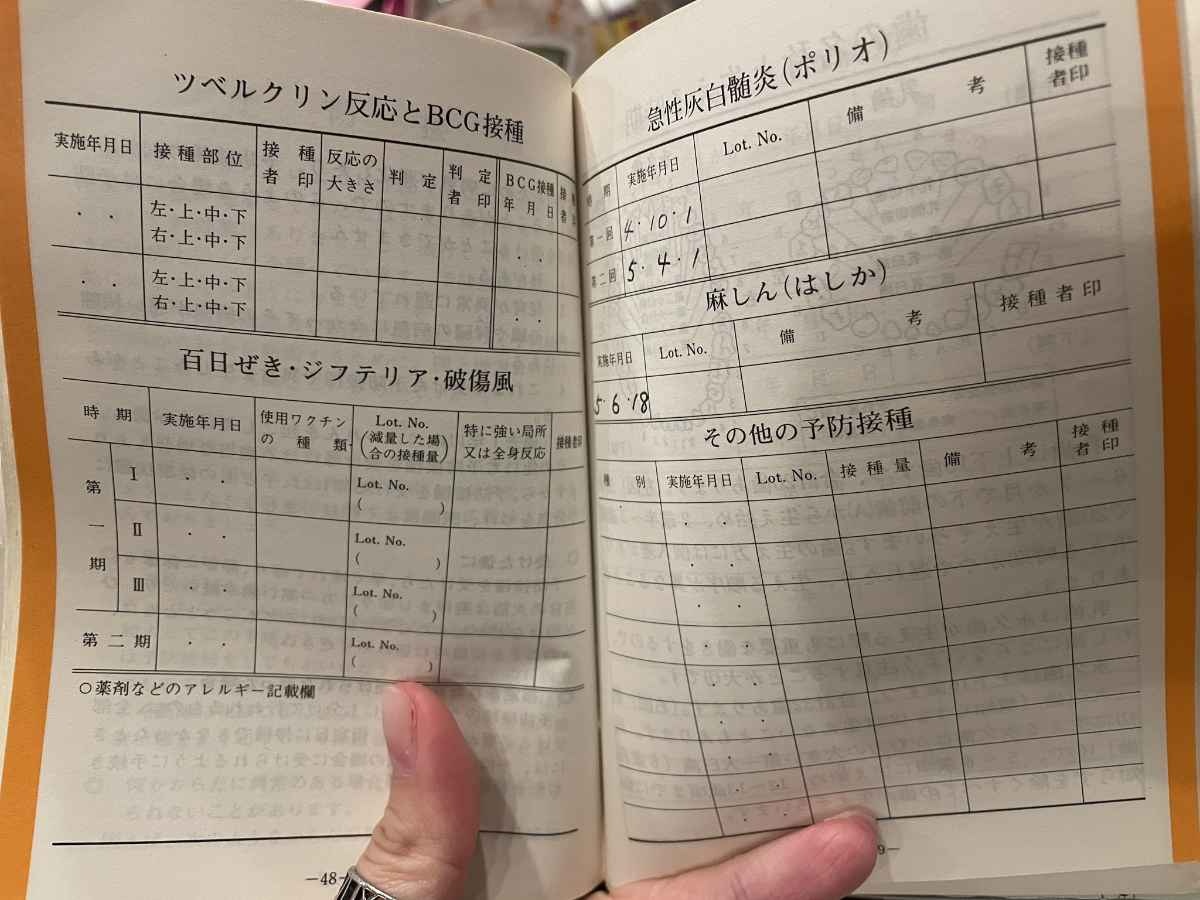 ツベルクリン反応とBCG接種
実施年月日 接種部位 接種者印 反応の大きさ 判定 判定者印 BCG接種年月日 接種者
・ ・ 左・上・中・下
右・上・中・下 ・ ・
・ ・ 左・上・中・下
右・上・中・下 ・ ・
百日ぜき・ジフテリア・破傷風
時期 実施年月日 使用ワクチンの種類 Lot. No.(減量した場合の接種量) 特に強い局所又は全身反応 接種者印
第一期 Ⅰ ・ ・ Lot. No.
( )
Ⅱ ・ ・ Lot. No.
( )
Ⅲ ・ ・ Lot. No.
( )
第二期 ・ ・ Lot. No.
( )
○薬剤などのアレルギー記載欄
—48—
急性灰白髄炎(ポリオ)
時期 実施年月日 Lot. No. 備考 接種者印
第一回 4・10・1
第二回 5・4・1
麻しん(はしか)
実施年月日 Lot. No. 備考 接種者印
5・6・18
その他の予防接種
種別 実施年月日 Lot. No. 接種量 備考 接種者印
・ ・
・ ・
・ ・
・ ・
・ ・
9—